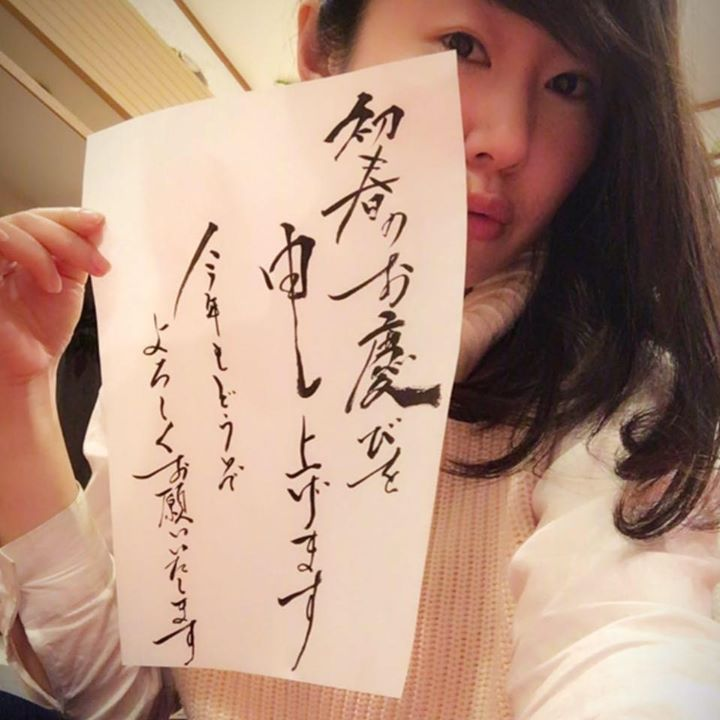 初春のお慶びを
申し上げます
今年もどうぞ
よろしくお願いいたします